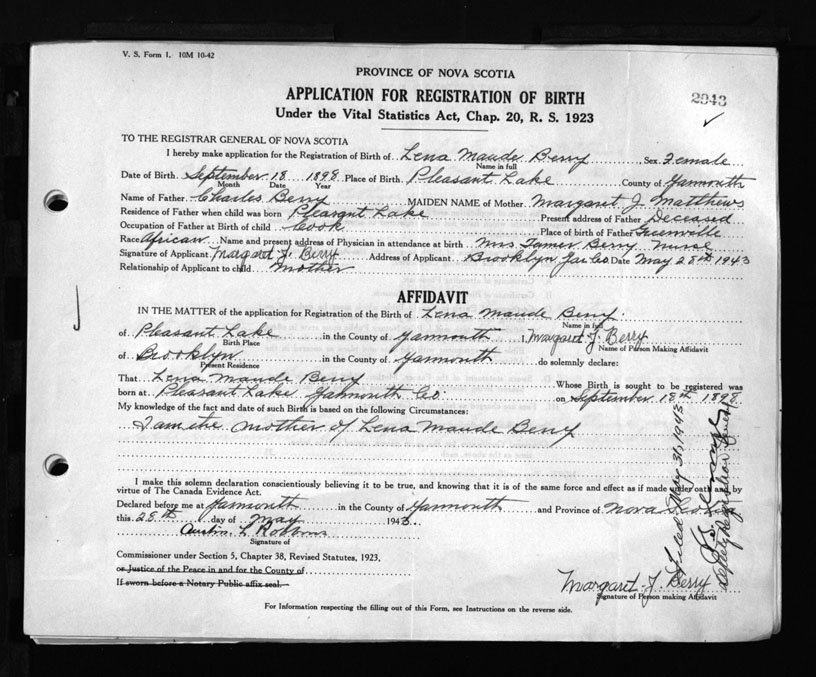 V. S. Form 1. 10M 10-42
PROVINCE OF NOVA SCOTIA
2943
APPLICATION FOR REGISTRATION OF BIRTH
Under the Vital Statistics Act, Chap. 20, R. S. 1923
TO THE REGISTRAR GENERAL OF NOVA SCOTIA
I hereby make application for the Registration of Birth of Lena Maude Berry Sex Female
Name in full
Date of Birth September 18 1898 Place of Birth Pleasant Lake County of Yarmouth
Month Date Year
Name of Father Charles Berry MAIDEN NAME of Mother Margaret J. Matthews
Residence of Father when child was born Pleasant Lake Present address of Father Deceased
Occupation of Father at Birth of child Cook Place of birth of Father Greenville
Race African Name and present address of Physician in attendance at birth Mrs Tamer Berry Nurse
Signature of Applicant Margaret J. Berry Address of Applicant Brooklyn Yar Co. Date May 28th 1943
Relationship of Applicant to child mother
AFFIDAVIT
IN THE MATTER of the application for Registration of the Birth of Lena Maude Berry
Name in full
of Pleasant Lake in the County of Yarmouth, Margaret J. Berry
Birth Place Name of Person Making Affidavit
of Brooklyn in the County of Yarmouth do solemnly declare:
Present Residence
That Lena Maude Berry Whose Birth is sought to be registered was
born at Pleasant Lake Yarmouth Co. on September 18th 1898
My knowledge of the fact and date of such Birth is based on the following Circumstances:
I am the mother of Lena Maude Berry
I make this solemn declaration conscientiously believing it to be true, and knowing that it is of the same force and effect as if made under oath and by
virtue of The Canada Evidence Act.
Declared before me at Yarmouth in the County of Yarmouth and Province of Nova Scotia
this 28th day of May 1943
Austin L Robbins
Signature of
Commissioner under Section 5, Chapter 38, Revised Statutes, 1923,
or Justice of the Peace in and for the County of
If sworn before a Notary Public affix seal.
Margaret J. Berry
Signature of Person making Affidavit
For Information respecting the filling out of this Form, see Instructions on the reverse side.
Filed May 31, 1943
Deputy Registrar